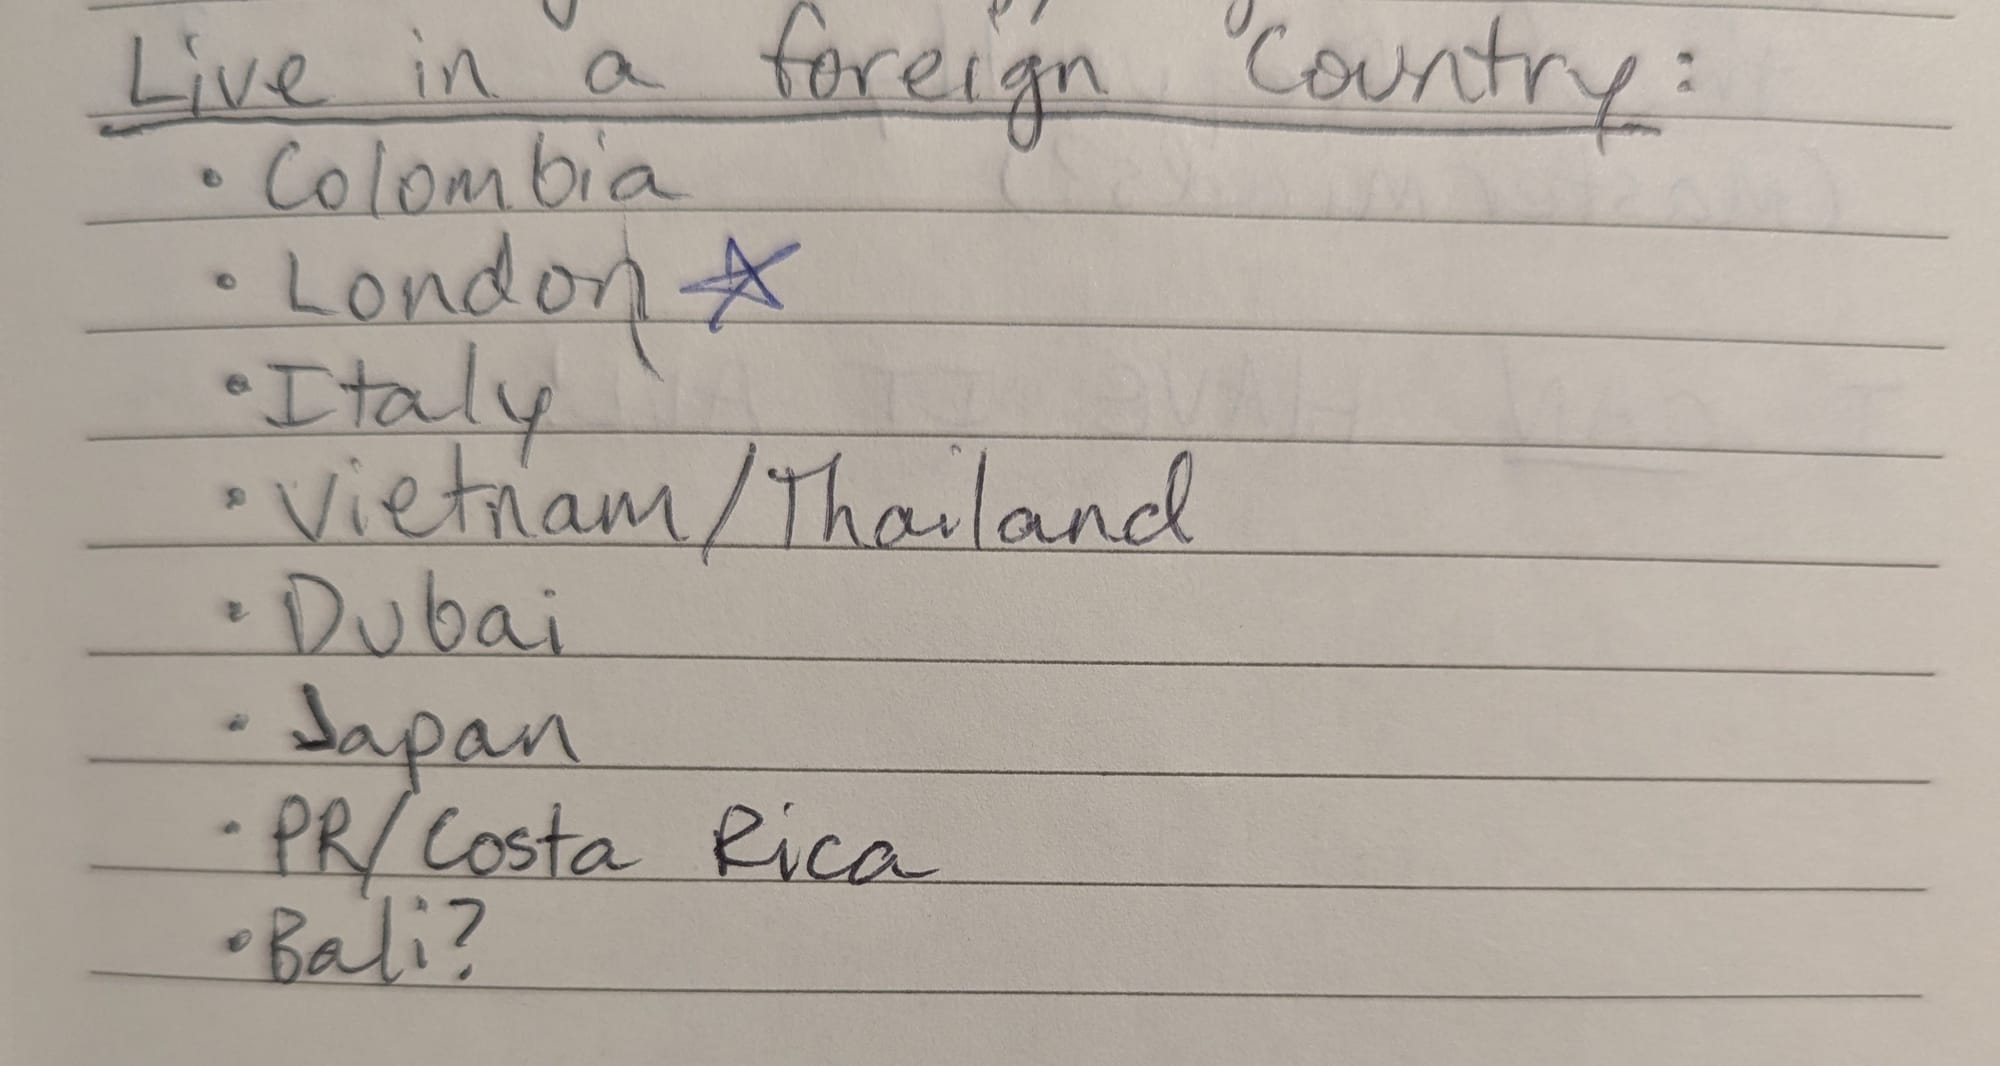 Live in a foreign Country:
• Colombia
• London ☆
• Italy
• Vietnam/Thailand
• Dubai
• Japan
• PR/Costa Rica
• Bali?